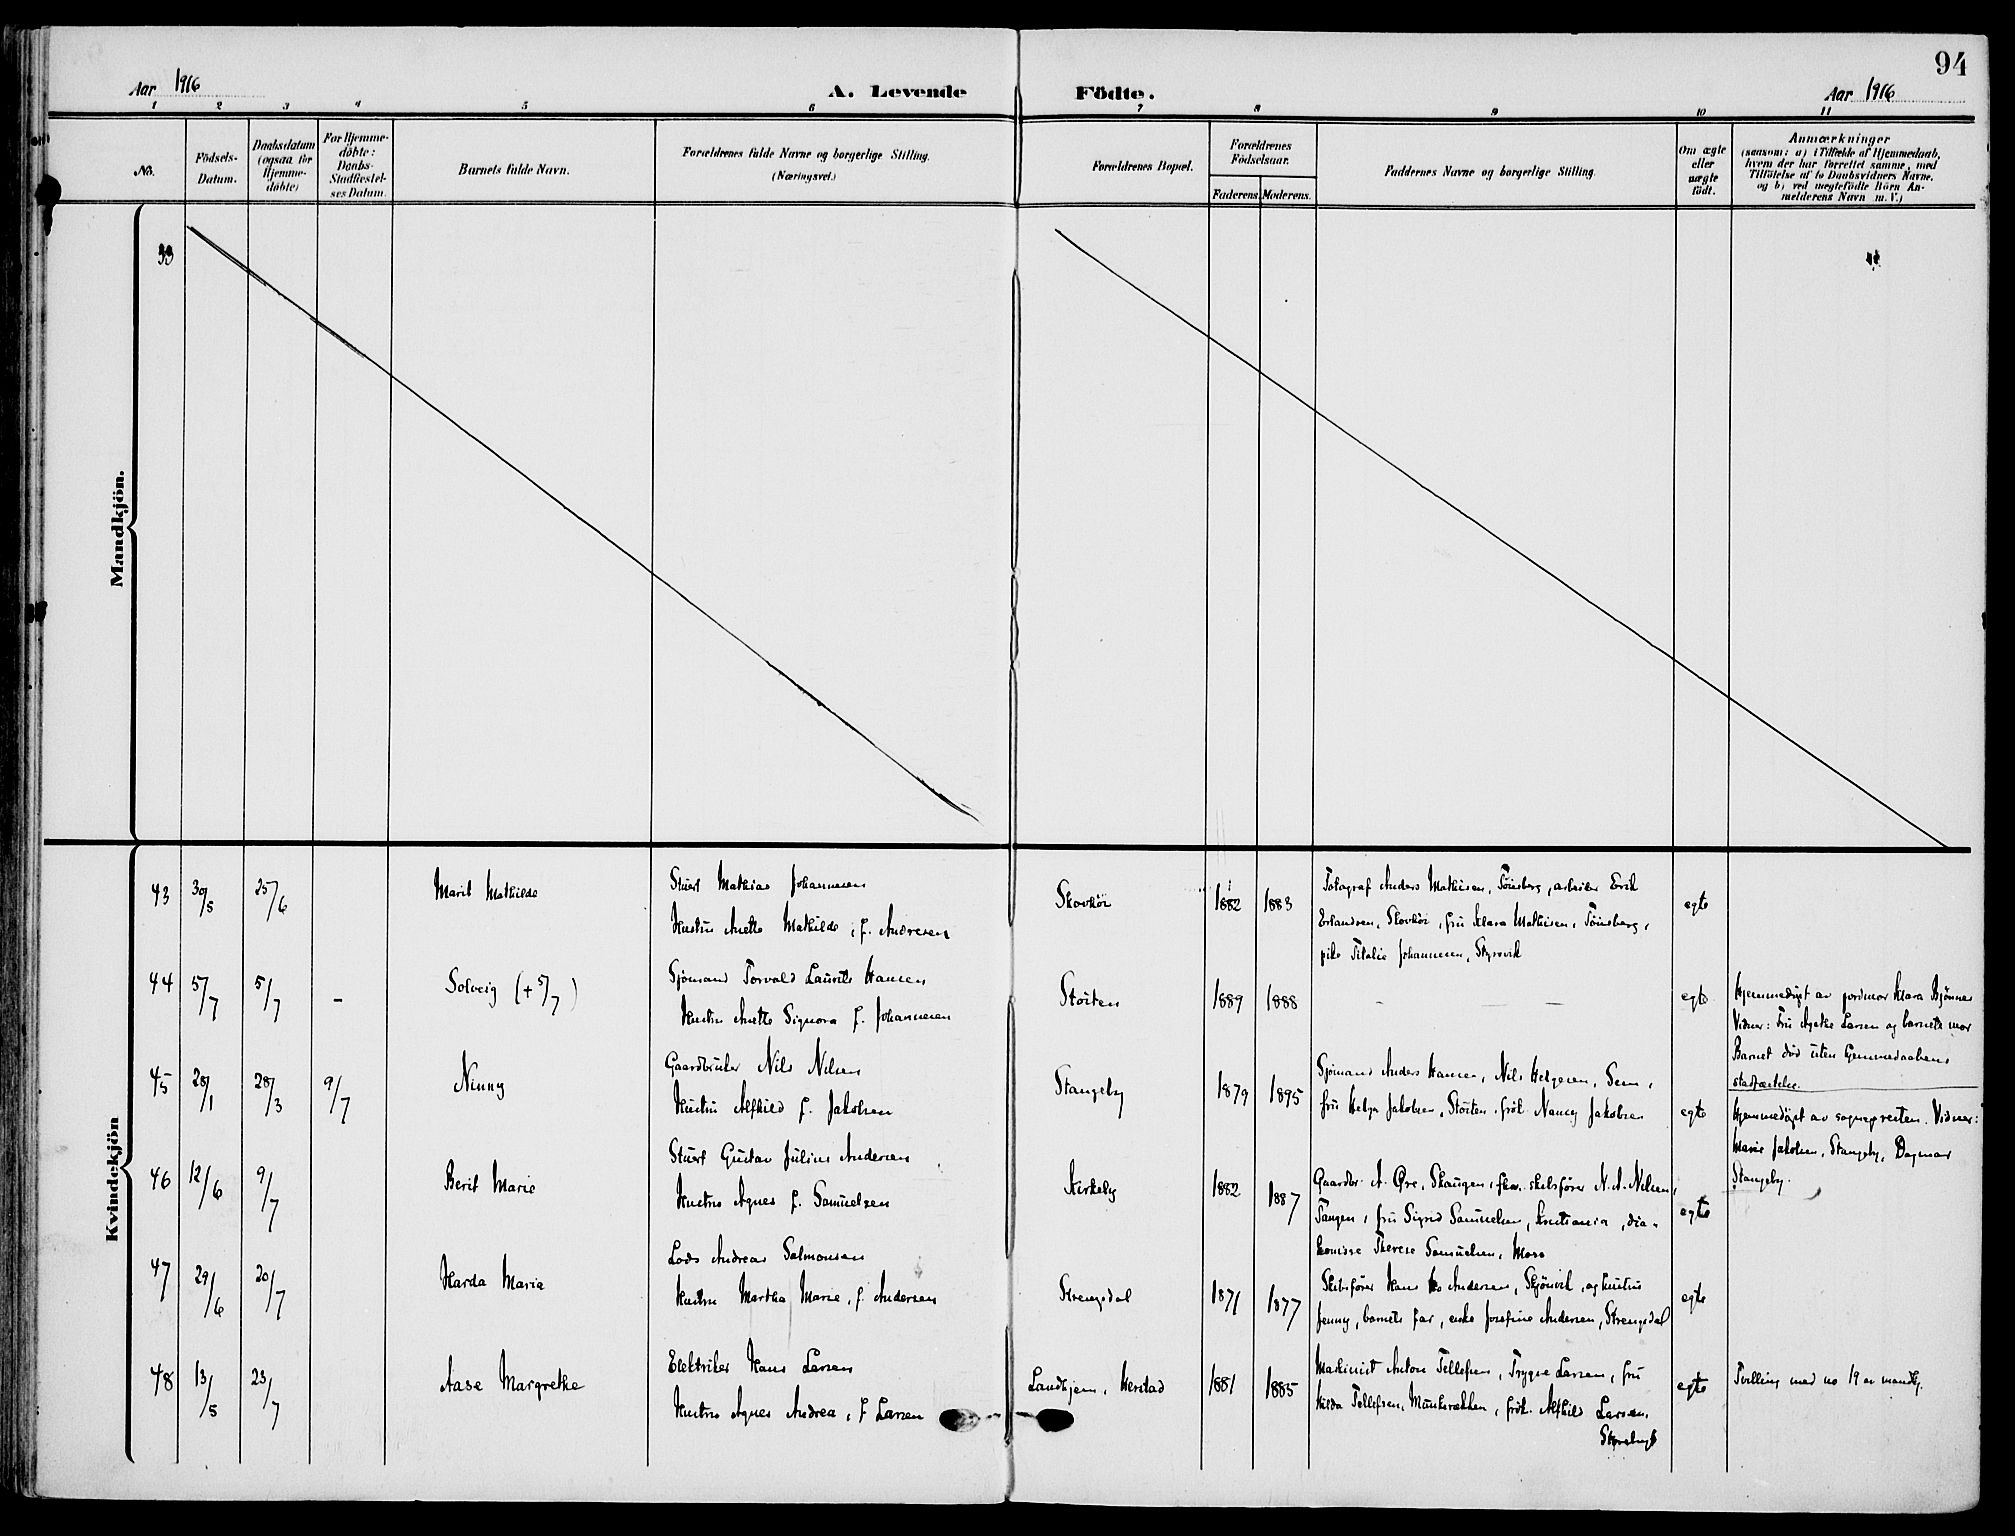 94
Aar 1916
A. Levende Födte.
Aar 1916
1 2 3 4 5 6 7 8 9 10 11
No.
Födsels-
Datum.
Daabsdatum
(ogsaa for
Hjemme-
döbte)
For Hjemme-
döbte:
Daabs-
Stadfæstel-
ses Datum.
Barnets fulde Navn.
Forældrenes fulde Navne og borgerlige Stilling.
(Næringsvei.)
Forældrenes Bopæl.
Forældrenes
Födselsaar.
Faderens. Moderens.
Faddernes Navne og borgerlige Stilling.
Om ægte
eller
uægte
födt.
Anmærkninger
(saasom: a) i Tilfælde af Hjemmedaab,
hvem der har forrettet samme, med
Tilföielse af to Daabsvidners Navne,
og b) ved uægtefödte Börn An-
melderens Navn m. V.)
Mandkjön.
33
Kvindekjön
43 30/5 25/6
Marit Mathilde
Stuert Mathias Johannesen
Hustru Anette Mathilde, f. Andresen
Skovkör
1882 1883
Fotograf Anders Mathisen, Tönsberg, arbeider Erik
Erlandsen, Skovkör, fru Klara Mathisen, Tönsberg,
pike Titalie Johannesen,
egte
44 5/7 5/7 -
Solveig (+ 5/7)
Sjömand Torvald Laurits Hansen
Hustru Anette Signora f. Johannesen
Stöiten
1889 1888
- -
egte
Hjemmedöpt av jordmor Klara Bjönnes
Vidner: Fru Agathe Larsen og barnets mor
Barnet död uten hjemmedaabens
stadfæstelse.
45 28/1 28/3 9/7
Ninny
Gaardbruker Nils Nilsen
Hustru Alfhild f. Jakobsen
Stangeby
1879 1895
Sjömand Anders Hansen, Nils Helgesen, Sem,
fru Helga Jakobsen, Stöiten, frök. Nancy Jakobsen
egte
Hjemmedöpt av sognepresten. Vidner:
Marie Jakobsen, Stangeby, Dagmar
Stangeby.
46 12/6 9/7
Berit Marie
Stuert Gustav Julius Andersen
Hustru Agnes f. Samuelsen
Kirkeby
1882 1887
Gaardbr. A. Öre, Skaugen, skibsförer N. A. Nilsen,
Tangen, fru Sigrid Samuelsen, Kristiania, dia-
konisse Therese Samuelsen, Moss
egte
47 29/6 20/7
Harda Maria
Lods Andreas Salmonsen
Hustru Martha Marie, f. Andersen
Strengsdal
1871 1877
Skibsförer Hans Andersen, Skjönvik, og hustru
Jenny, barnets far, enke Josefine Andersen, Strengsdal
egte
48 13/5 23/7
Aase Margrethe
Elektriker Hans Larsen
Hustru Agnes Andrea, f Larsen
Landhjem, Herstad
1881 1885
Maskinist Anton Tellefsen, Trygve Larsen, fru
Hilda Tellefsen, Munkerækken, frök. Alfhild Larsen,
egte
Tvilling med no 19 av mandkj.